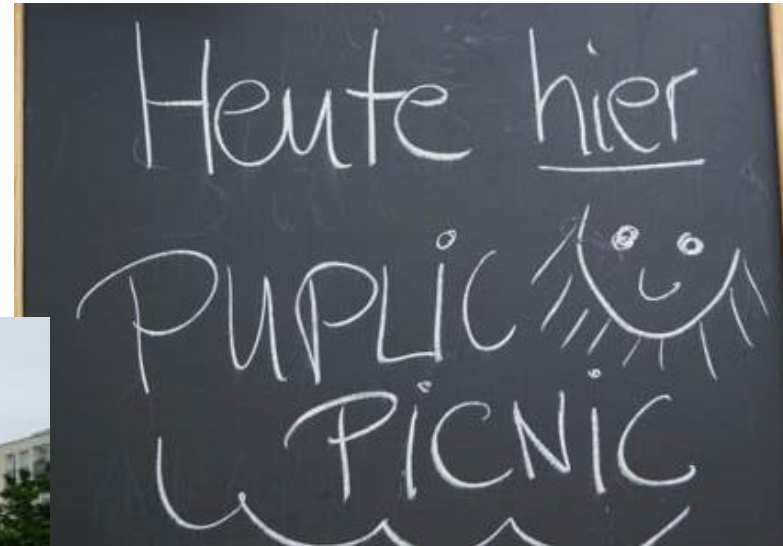 Heute hier
PUPLiC
PiCNiC